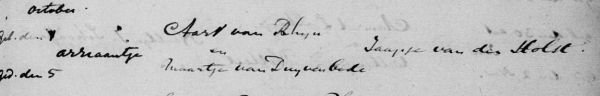 october.
geb. den 4
Aart van Rhyn
arriaantje en Jaapje van der Holst.
ged. den 5 Maartje van Duyvenbode